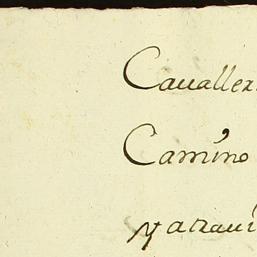 Caualler
Camino
y atraui